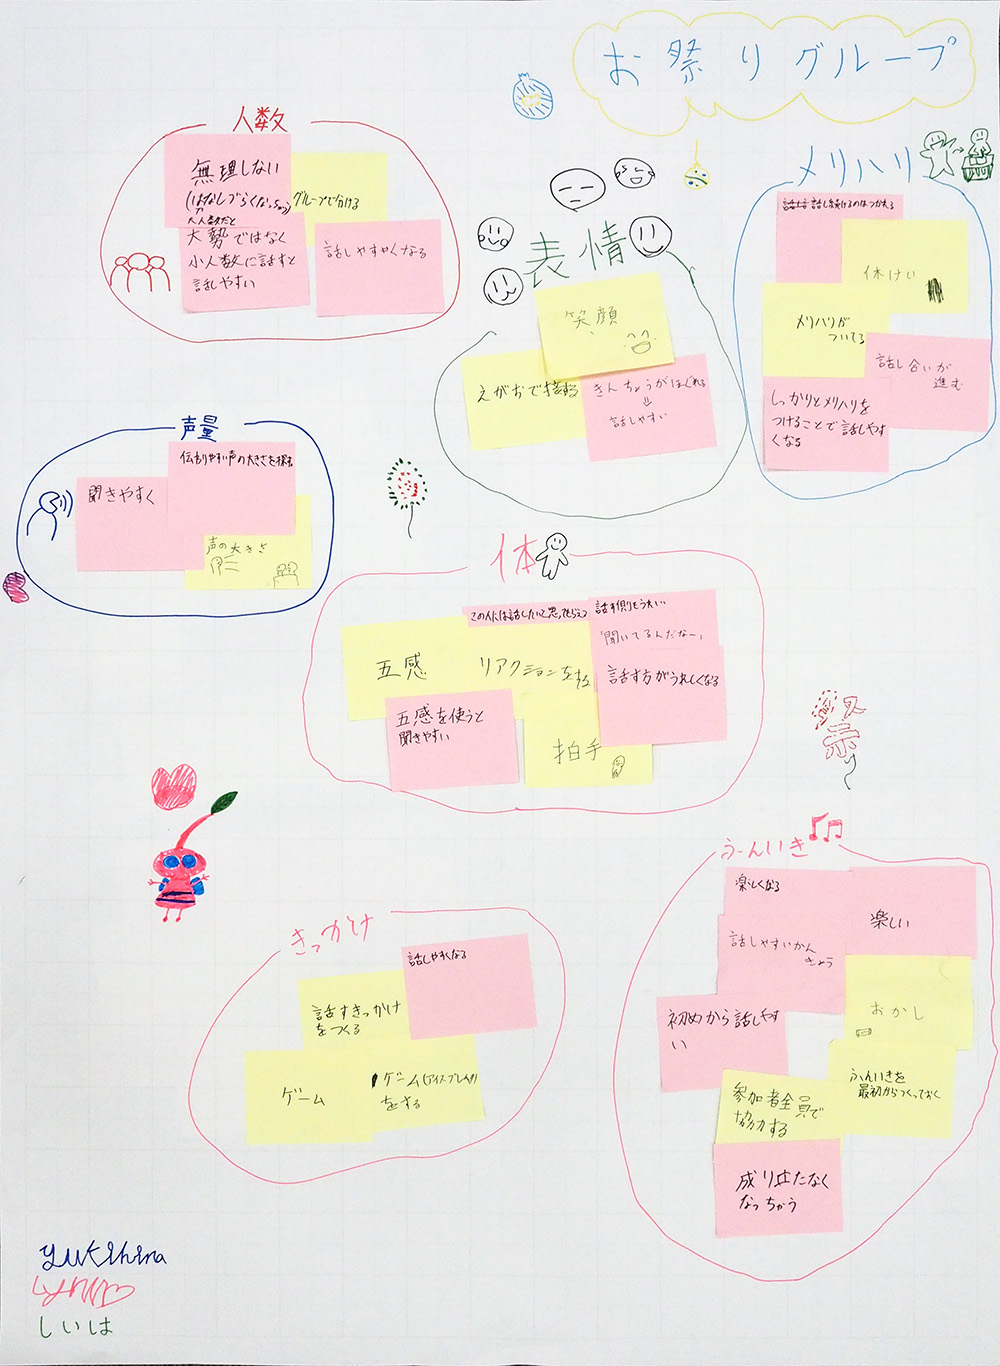 お祭りグループ
人数
無理しない
(はなしづらくなっちゃう)
大人数だと
グループで分ける
大勢ではなく
小人数に話すと
話しやすい
話しやすくなる
表情
笑顔
えがおで接する
きんちょうがほぐれる
⇓
話しやすい
メリハリ
話し続けるのはつかれる
休けい
メリハリが
ついてる
話し合いが
進む
しっかりとメリハリを
つけることで話しやす
くなる
声量
伝わりやすい声の大きさを探る
聞きやすく
声の大きさ
体
この人には話したいと思ってもらえる
話す側もうれしい
「聞いてるんだなー」
五感
リアクションをする
話す方がうれしくなる
五感を使うと
聞きやすい
拍手
祭
ふんいき
楽しくなる
楽しい
話しやすいかん
きょう
おかし
初めから話しやす
い
ふんいきを
最初からつくっておく
参加者全員で
協力する
成り立たなく
なっちゃう
きっかけ
話しやすくなる
話すきっかけ
をつくる
ゲーム
ゲーム(アイスブレイク)
をする
yukihina
しいは